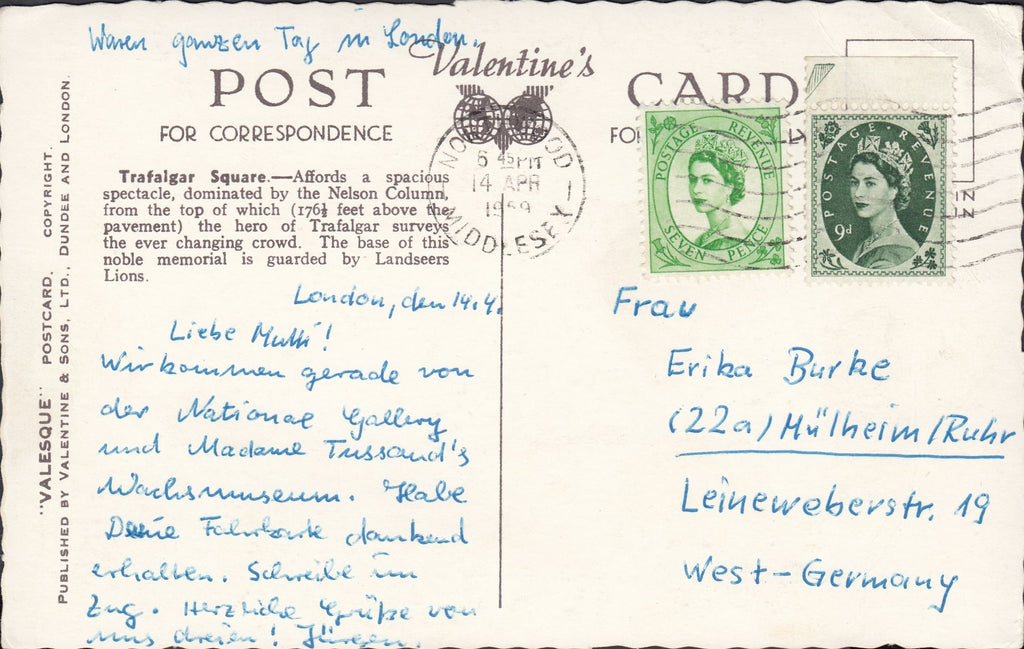 Waren ganzen Tag in London.
Valentine's
POST CARD
FOR CORRESPONDENCE
Trafalgar Square.—Affords a spacious
spectacle, dominated by the Nelson Column,
from the top of which (176½ feet above the
pavement) the hero of Trafalgar surveys
the ever changing crowd. The base of this
noble memorial is guarded by Landseers
Lions.
London, den 14.4.
Liebe Mutti!
Wir kommen gerade von
der National Gallery
und Madame Tussaud's
Wachsmuseum. Habe
Deine Fahrkarte dankend
erhalten. Schreibe im
Zug. Herzliche Grüße von
uns dreien! Jürgen.
"VALESQUE" POSTCARD. COPYRIGHT.
PUBLISHED BY VALENTINE & SONS, LTD., DUNDEE AND LONDON.
6 45 PM
14 APR
1959
MIDDLESEX
POSTAGE REVENUE
SEVEN PENCE
POSTAGE REVENUE
9d
Frau
Erika Burke
(22a) Mülheim/Ruhr
Leineweberstr. 19
West-Germany